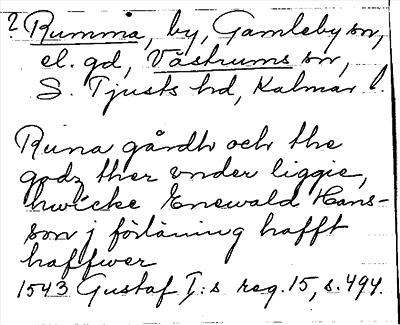 ? Rumma, by, Gamleby sn,
el. gd, Västrums sn,
S. Tjusts hd, Kalmar l.
Runa gårdh och the
godz ther vnder liggie,
hwicke Enewald Hans-
son j förläning hafft
haffwer
1543 Gustaf I:s reg. 15, s. 494.